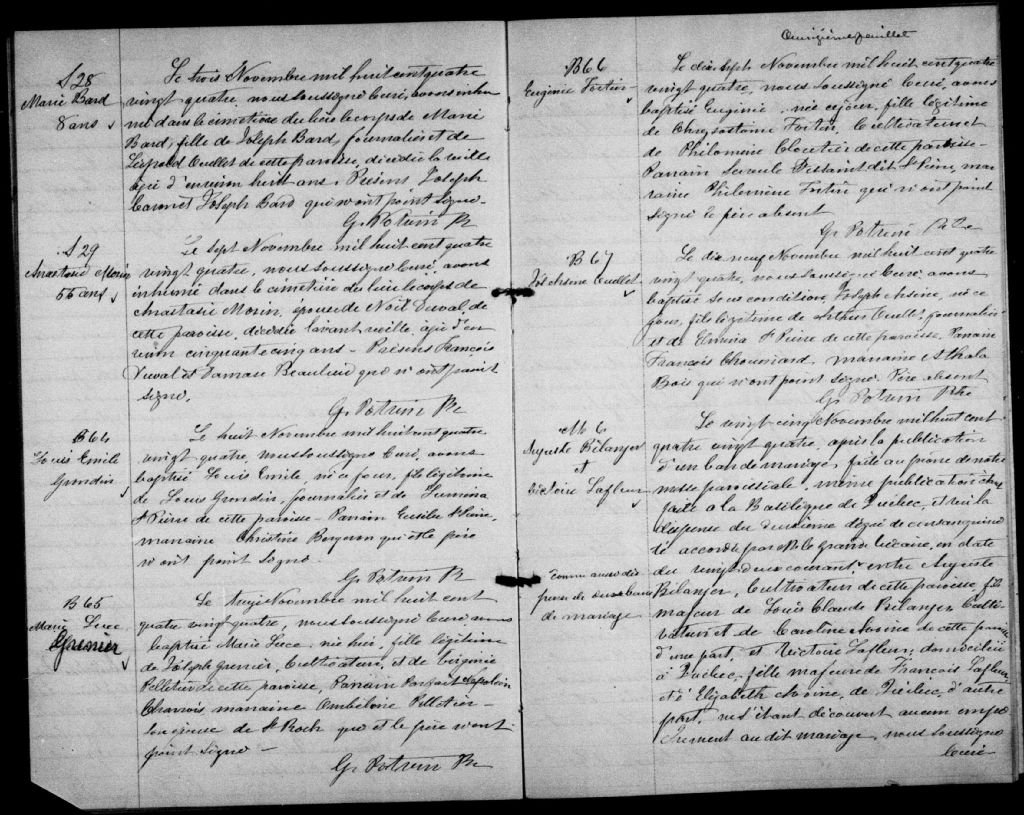 S 28
Marie Bard
8 ans
Le trois Novembre mil huit cent quatre
vingt quatre, nous soussigné Curé, avons inhu
mé dans le cimetière du lieu le corps de Marie
Bard, fille de Joseph Bard, journalier et de
Léopold Ouellet de cette paroisse, décédée la veille
agée d'environ huit ans. Présens Joseph
Joseph Bard qui n'ont point signé.
G. Potvin Ptr
S 29
Anastasie Morin
55 ans
Le sept Novembre mil huit cent quatre
vingt quatre, nous soussigné Curé, avons
inhumé dans le cimetière du lieu le corps de
Anastasie Morin, épouse de Noël Duval, de
cette paroisse, décédée l'avant veille, agée d'en
viron cinquante cinq ans - Présens François
Duval et Damase Beaulieu qui n'ont point
signé.
G. Potvin Ptr
B 64
Louis Emile
Grondin
Le huit Novembre mil huit cent quatre
vingt quatre, nous soussigné Curé, avons
baptisé Louis Emile, né ce jour, fils légitime
de Louis Grondin, journalier et de Lumina
St Pierre de cette paroisse - Parrain Eusèbe St Pierre,
marraine Christine Bergeron qui et le père
n'ont point signé.
G. Potvin Ptr
B 65
Marie Luce
Grenier
Le treize Novembre mil huit cent
quatre vingt quatre, nous soussigné Curé avons
baptisé Marie Luce, née hier, fille légitime
de Joseph Grenier, Cultivateur, et de Virginie
Pelletier de cette paroisse, Parrain Parfait Napoléon
marraine Ombéline Pelletier
son épouse de St Roch qui et le père n'ont
point signé -
G. Potvin Ptr
feuillet
B 66
Eugénie Fortin
Le dix sept Novembre mil huit cent quatre
vingt quatre, nous soussigné Curé, avons
baptisé Eugénie, née ce jour, fille légitime
de Chrysostome Fortin, Cultivateur et
de Philomène Cloutier de cette paroisse -
Parrain dit St Pierre, mar
raine Philomène Fortin qui n'ont point
signé le père absent
G. Potvin Ptre
B 67
Jos Arsène Ouellet
Le dix neuf Novembre mil huit cent quatre
vingt quatre, nous soussigné Curé, avons
baptisé sous condition, Joseph Arsène, né ce
jour, fils légitime de Arthur Ouellet, journalier
et de Emina St Pierre de cette paroisse, Parrain
François Chouinard, marraine
Bois qui n'ont point signé. Père absent
G. Potvin Ptre
M 6
Auguste Bélanger
et
Victoire Lafleur
Le vingt cinq Novembre mil huit cent
quatre vingt quatre, après la publication
d'un ban de mariage, faite au prône de notre
messe paroissiale, même publication étant
faite à la Basilique de Québec, et vu la
dispense du deuxième dégré de consanguini
té accordée par Mr le grand Vicaire, en date
comme aussi dis
pense de deux bans
de mariage
du vingt deux courant, entre Auguste
Bélanger, Cultivateur de cette paroisse, fils
majeur de Louis Claude Bélanger, Culti
vateur et de Caroline Avoine de cette paroisse
d'une part, et Victoire Lafleur, domiciliée
à Québec, fille majeure de François Lafleur
et d'Elizabeth Avoine, de Québec, d'autre
part, ne s'étant découvert aucun empê
chement au dit mariage, nous soussigné
Curé